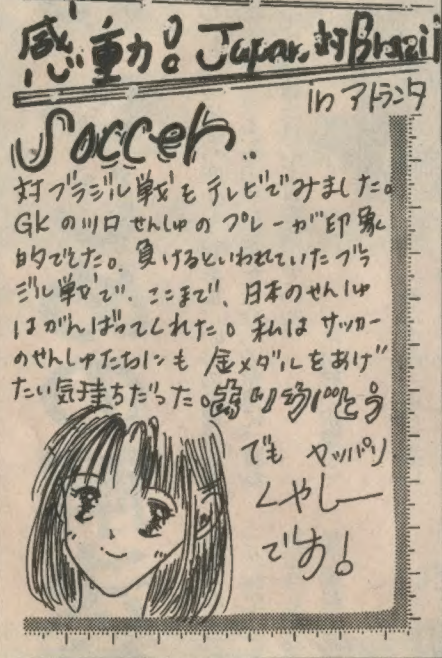 感動!! Japan 対 Brazil
in アトランタ
Soccer..
対ブラジル戦をテレビでみました。
GKの川口せんしゅのプレーが印象
的でした。負けるといわれていたブラ
ジル戦で、ここまで、日本のせんしゅ
はがんばってくれた。私はサッカー
のせんしゅたちにも金メダルをあげ
たい気持ちだった。ありがとう
でも ヤッパリ
くやしー
です!